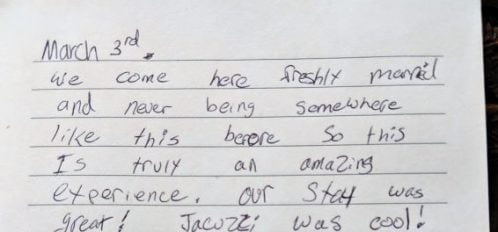 March 3rd.
we come here freshly married
and never being somewhere
like this before so this
Is truly an amazing
experience. our Stay was
great! Jacuzzi was cool!